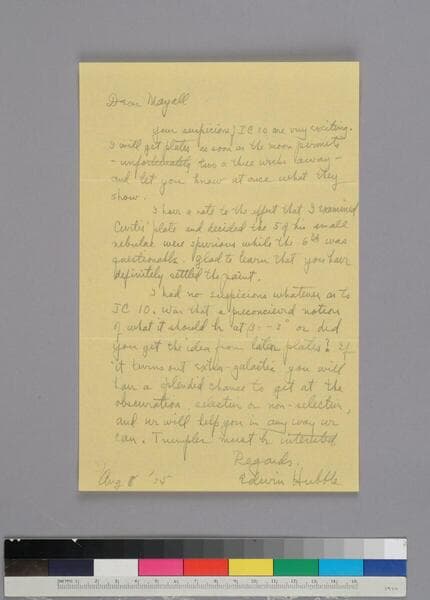 Dear Mayall
Your suspicions of IC 10 are very exciting.
I will get plates as soon as the moon permits
- unfortunately two or three weeks away -
and let you know at once what they
show.
I have a note to the effect that I examined
Curtis' plate and decided the 5 of his small
nebulae were spurious while the 6th was
questionable. Glad to learn that you have
definitely settled the point.
I had no suspicions whatever as to
IC 10. Was that a preconceived notion
of what it should be "at β = -3°" or did
you get the idea from later plates? If
it turns out extra-galactic you will
have a splendid chance to get at the
obscuration, selective or non-selective,
and we will help you in any way we
can. Trumpler must be interested.
Regards,
Aug 8 '35 Edwin Hubble